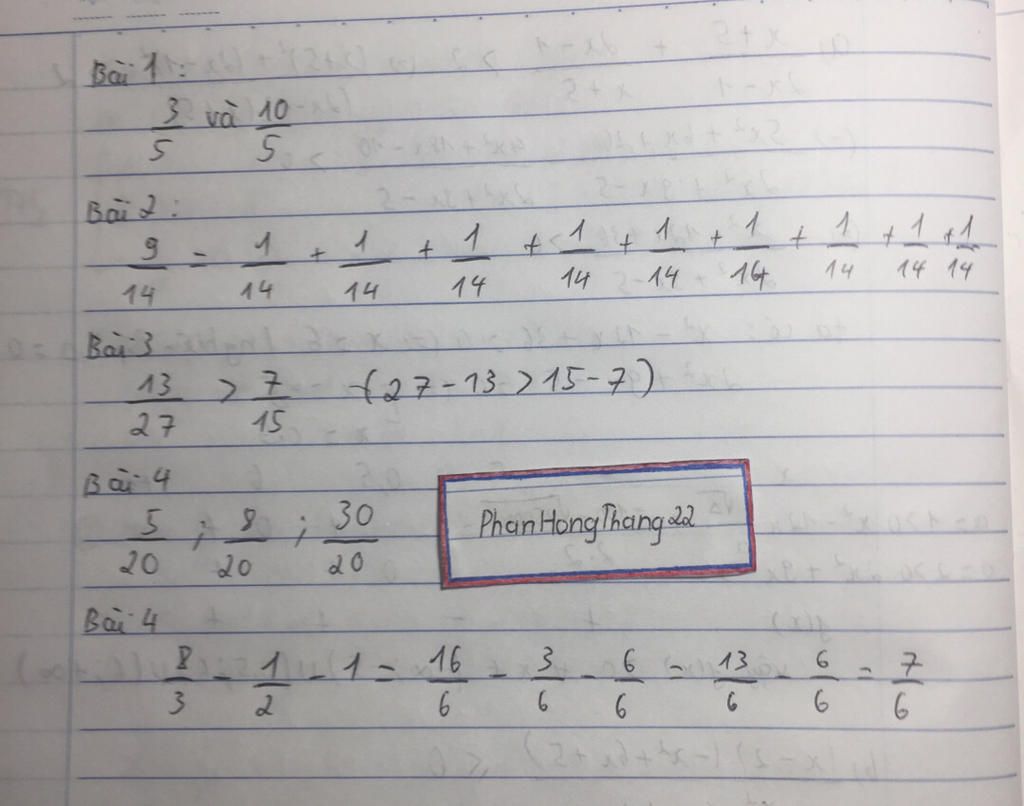 Bài 1:
3/5 và 10/5
Bài 2:
9/14 = 1/14 + 1/14 + 1/14 + 1/14 + 1/14 + 1/14 + 1/14 + 1/14 + 1/14
Bài 3
13/27 > 7/15 (27-13 > 15-7)
Bài 4
5/20 ; 8/20 ; 30/20
PhanHongThang22
Bài 4
8/3 - 1/2 - 1 = 16/6 - 3/6 - 6/6 = 13/6 - 6/6 = 7/6